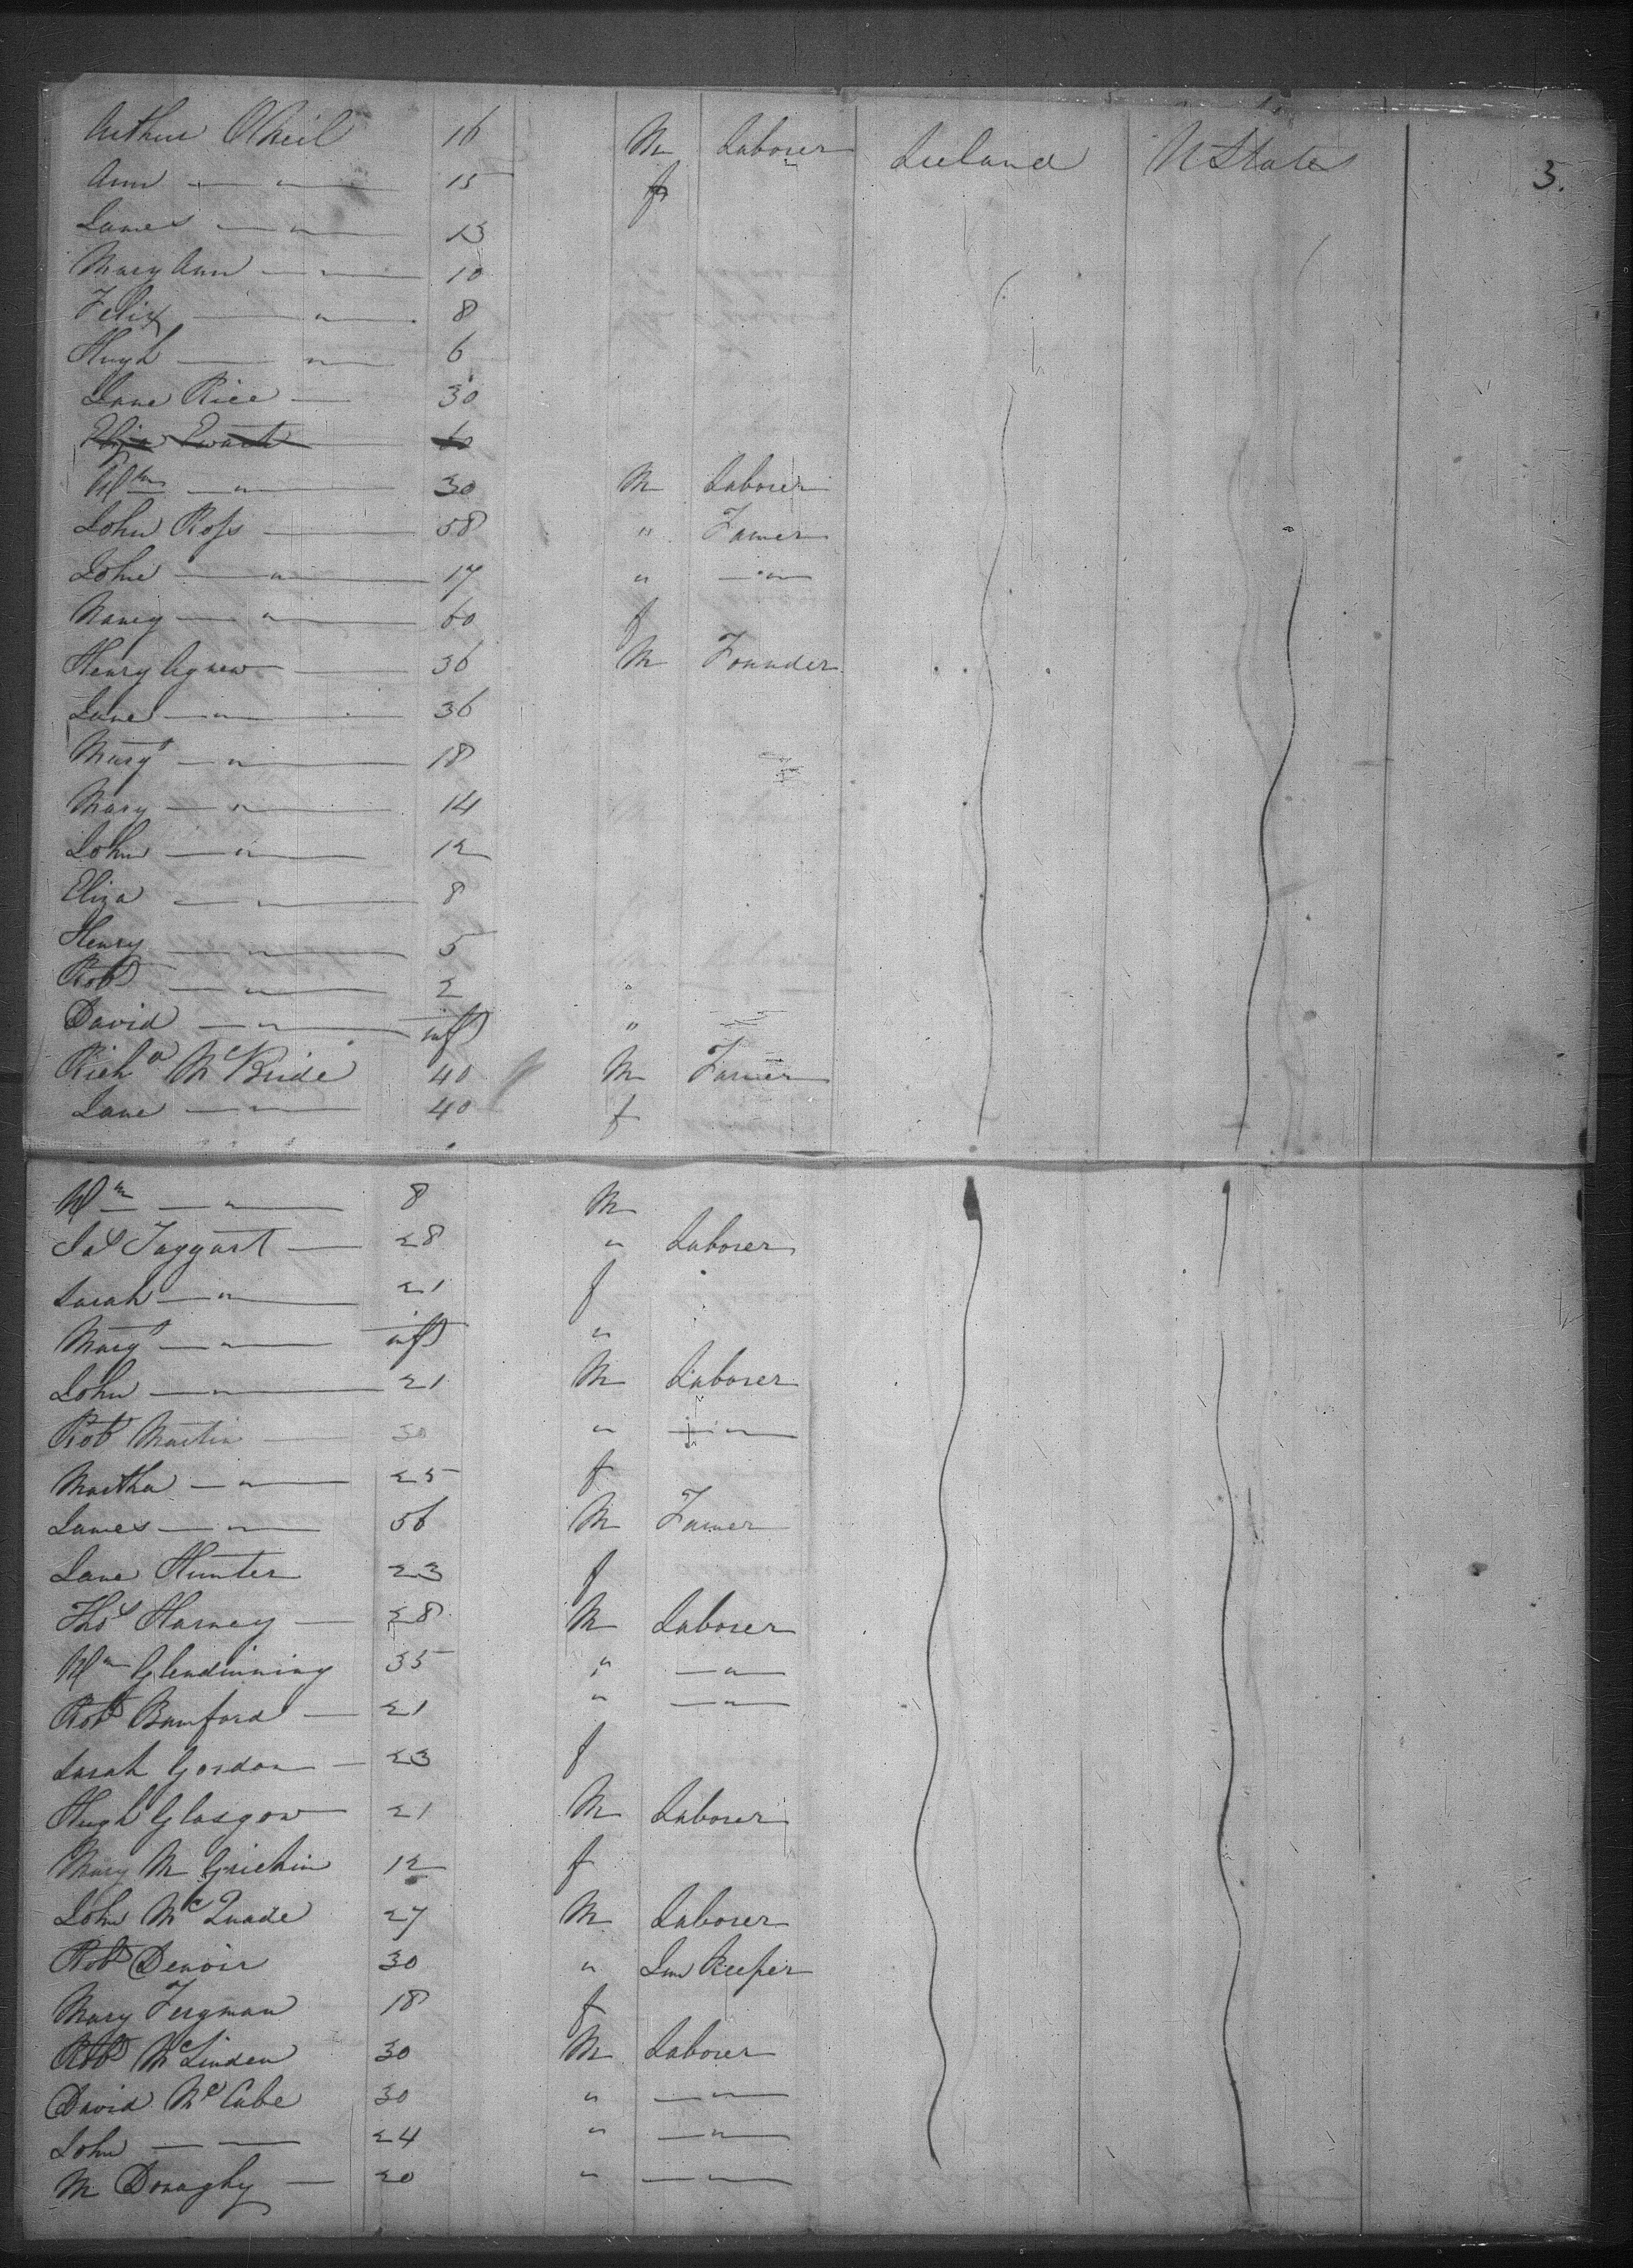 3.
Arthur O'Neil 16 M Laborer Ireland U States
Ann — " — 15 f
James — " — 13
Mary Ann — " — 10
Felix — " — 8
Hugh — " — 6
Jane Rice — 30
Eliza Ewart — 60
Wm — " — 30 M Laborer
John Ross — 58 " Farmer
John — " — 17 " — " —
Nancy — " — 60 f
Henry Agnew — 36 M Founder
Jane — " — 36
Margt — " — 18
Mary — " — 14
John — " — 12
Eliza — " — 8
Henry — " — 5
Robt — " — 2
David — " — inft "
Richd McBride 40 M Farmer
Jane — " — 40 f
Wm — " — 8 M
Jas Taggart — 28 " Laborer
Sarah — " — 21 f
Margt — " — inft "
John — " — 21 M Laborer
Robt Martin — 30 " — " —
Martha — " — 25 f
James — " — 56 M Farmer
Jane Hunter 23 f
Thos Harvey — 28 M Laborer
Wm Glendinning 35 " — " —
Robt Bamford — 21 " — " —
Sarah Gordon — 23 f
Hugh Glasgow 21 M Laborer
Mary M 12 f
John McQuade 27 M Laborer
Robt Denoir 30 " Inn Keeper
Mary Fergman 18 f
Robt McLinden 30 M Laborer
David McCabe 30 " — " —
John — — 24 " — " —
M Donaghy — 20 " — " —